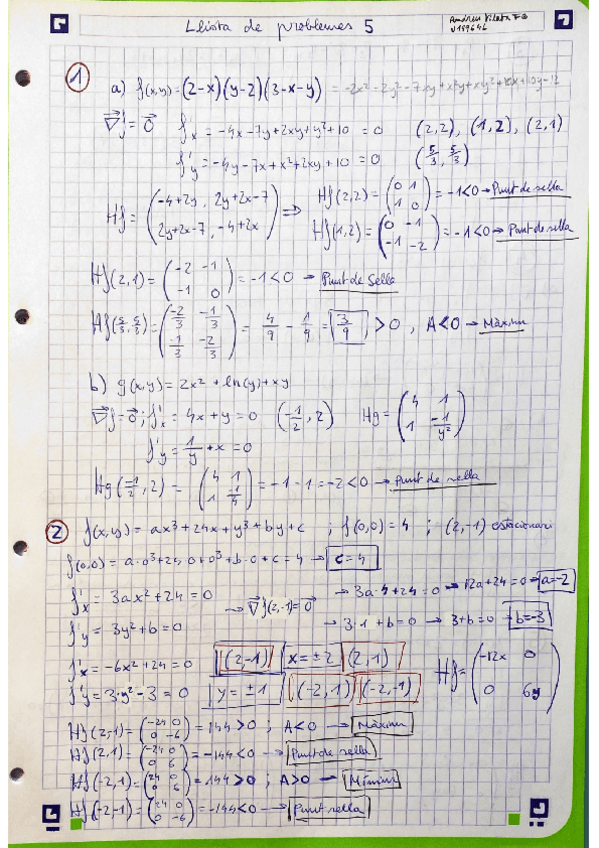 Llista de problemes 5
Andreu Vilata F@
U189646
1
a) f(x,y) = (2-x)(y-2)(3-x-y) = -2x²-2y²-7xy+x²y+xy²+10x+10y-12
∇f = 0 f'x = -4x-7y+2xy+y²+10 = 0 (2,2), (1,2), (2,1)
f'y = -4y-7x+x²+2xy+10 = 0 (5/3, 5/3)
Hf = (-4+2y, 2y+2x-7 / 2y+2x-7, -4+2x) ⇒ Hf(2,2) = (0 1 / 1 0) = -1<0 → Punt de sella
Hf(1,2) = (0 -1 / -1 -2) = -1<0 → Punt de sella
Hf(2,1) = (-2 -1 / -1 0) = -1<0 → Punt de Sella
Hf(5/3, 5/3) = (-2/3 -1/3 / -1/3 -2/3) = 4/9 - 1/9 = 3/9 > 0, A<0 → Màxim
b) g(x,y) = 2x² + ln(y) + xy
∇f = 0; f'x = 4x+y = 0 (-1/2, 2) Hg = (4 1 / 1 -1/y²)
f'y = 1/y + x = 0
Hg(-1/2, 2) = (4 1 / 1 -1/4) = -1-1 = -2<0 → Punt de sella
2 f(x,y) = ax³+24x+y³+by+c ; f(0,0) = 4 ; (2,-1) estacionari
f(0,0) = a·0³+24·0+0³+b·0+c = 4 → c=4
f'x = 3ax²+24 = 0 → ∇f(2,-1) = 0 → 3a·4+24 = 0 → 12a+24 = 0 → a=-2
f'y = 3y²+b = 0 → 3·1+b = 0 → 3+b = 0 → b=-3
f'x = -6x²+24 = 0 (2-1) x = ±2 (2,1) Hf = (-12x 0 / 0 6y)
f'y = 3·y²-3 = 0 y = ±1 (-2,1) (-2,-1)
Hf(2,-1) = (-24 0 / 0 -6) = 144 > 0 ; A<0 → Màxim
Hf(2,1) = (-24 0 / 0 6) = -144<0 → Punt de sella
Hf(-2,1) = (24 0 / 0 6) = 144 > 0 ; A>0 → Mínim
Hf(-2-1) = (24 0 / 0 -6) = -144<0 → Punt sella